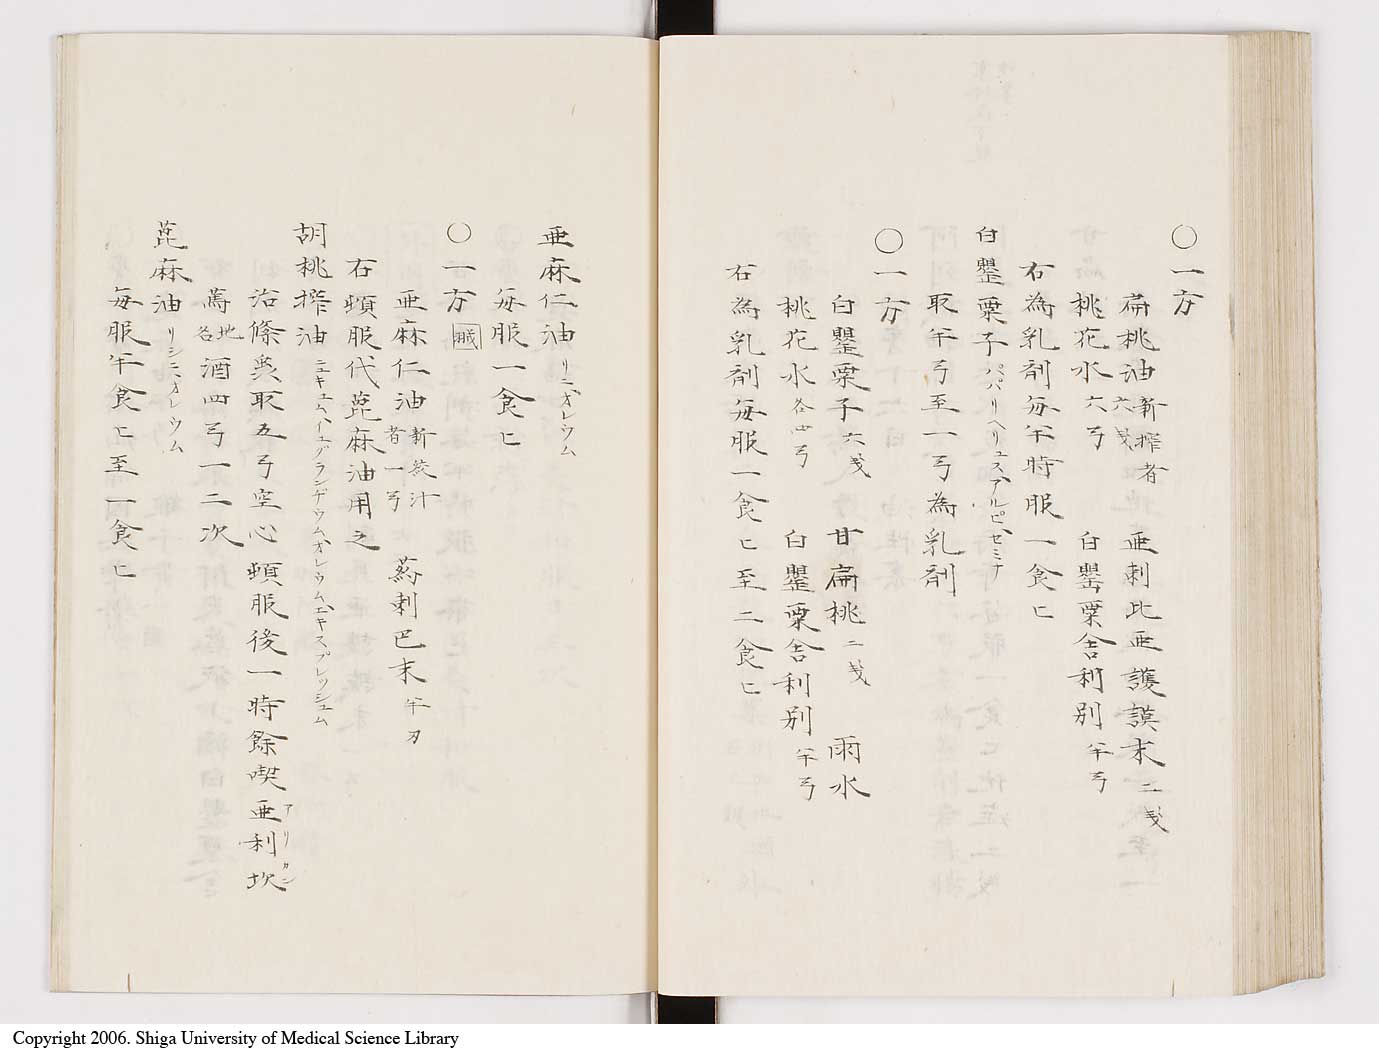 〇一方
扁桃油新搾者六戔 亜剌比亜護謨末二戔
桃花水六弓 白罌粟舎利別半弓
右為乳剤毎半時服一食匕
白罌粟子パパリヘリュス、アルピ、セミナ
取半弓至一弓為乳剤
〇一方
白罌粟子六戔 甘扁桃二戔 雨水
桃花水各四弓 白罌粟舎利別半弓
右為乳剤毎服一食匕至二食匕
亜麻仁油リニ、オレウム
毎服一食匕
〇一方
亜麻仁油新絞汁者一弓 葯剌巴末半刃
右頓服代蓖麻油用之
胡桃搾油ニュキュム、イュグランヂウム、オレウム、エキスプレッシュム
治絛虫取五弓空心頓服後一時餘喫亜利坎
萬地各酒四弓一二次
蓖麻油リシニ、オレウム
毎服半食匕至一食匕
Copyright 2006. Shiga University of Medical Science Library